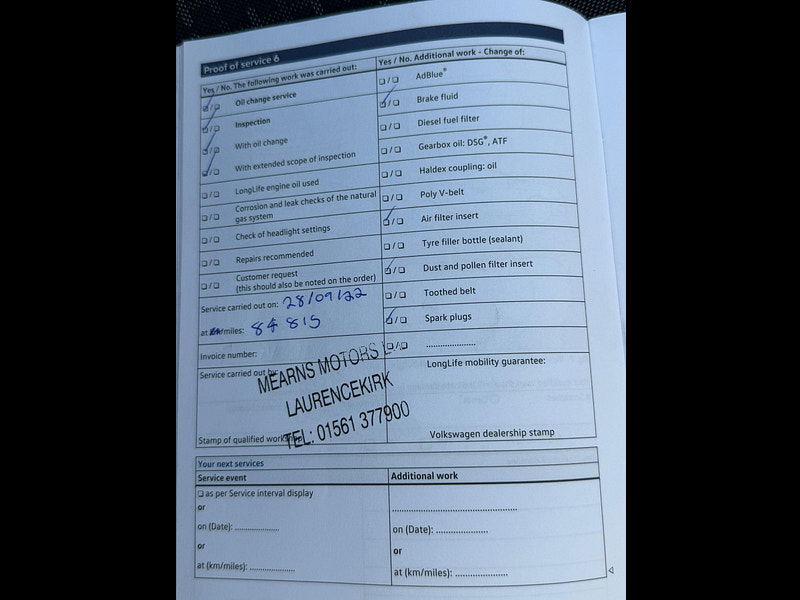 Proof of service 6
Yes / No. The following work was carried out:
☑/☐ Oil change service
☑/☐ Inspection
☑/☐ With oil change
☑/☐ With extended scope of inspection
☐/☐ LongLife engine oil used
☐/☐ Corrosion and leak checks of the natural
gas system
☐/☐ Check of headlight settings
☐/☐ Repairs recommended
☐/☐ Customer request
(this should also be noted on the order)
Service carried out on: 28/09/22
at km/miles: 84 815
Invoice number:
Service carried out by:
MEARNS MOTORS
LAURENCEKIRK
TEL: 01561 377900
Stamp of qualified workshop
Yes / No. Additional work - Change of:
☐/☐ AdBlue®
☑/☐ Brake fluid
☐/☐ Diesel fuel filter
☐/☐ Gearbox oil: DSG®, ATF
☐/☐ Haldex coupling: oil
☐/☐ Poly V-belt
☑/☐ Air filter insert
☐/☐ Tyre filler bottle (sealant)
☑/☐ Dust and pollen filter insert
☐/☐ Toothed belt
☑/☐ Spark plugs
☐/☐ ......................
LongLife mobility guarantee:
Volkswagen dealership stamp
Your next services
Service event
☐ as per Service interval display
or
on (Date): ................
or
at (km/miles): ................
Additional work
............................................
on (Date): ...................
or
at (km/miles): ...................